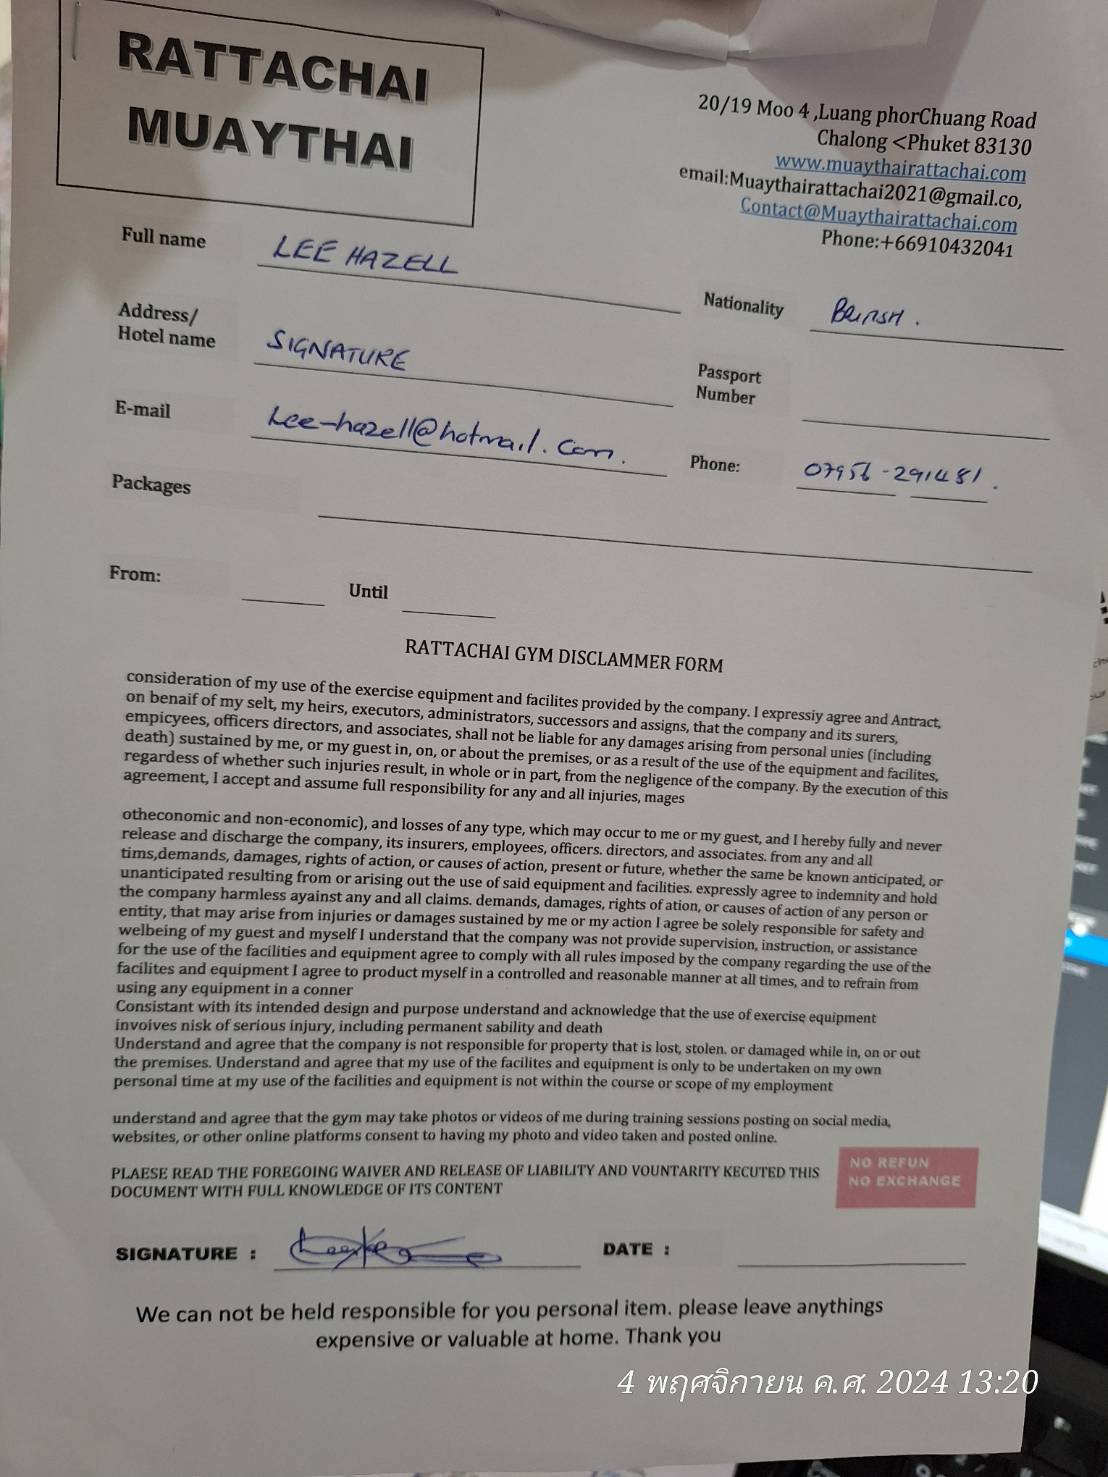 RATTACHAI
MUAYTHAI
20/19 Moo 4 ,Luang phorChuang Road
Chalong <Phuket 83130
www.muaythairattachai.com
email:Muaythairattachai2021@gmail.co,
Contact@Muaythairattachai.com
Phone:+66910432041
Full name LEE HAZELL
Nationality BRITISH.
Address/
Hotel name SIGNATURE
Passport
Number
E-mail Lee-hazell@hotmail.com.
Phone: 07956-291481.
Packages
From: Until
RATTACHAI GYM DISCLAMMER FORM
consideration of my use of the exercise equipment and facilites provided by the company. I expressiy agree and Antract,
on benaif of my selt, my heirs, executors, administrators, successors and assigns, that the company and its surers,
empicyees, officers directors, and associates, shall not be liable for any damages arising from personal unies (including
death) sustained by me, or my guest in, on, or about the premises, or as a result of the use of the equipment and facilites,
regardess of whether such injuries result, in whole or in part, from the negligence of the company. By the execution of this
agreement, I accept and assume full responsibility for any and all injuries, mages
otheconomic and non-economic), and losses of any type, which may occur to me or my guest, and I hereby fully and never
release and discharge the company, its insurers, employees, officers. directors, and associates. from any and all
tims,demands, damages, rights of action, or causes of action, present or future, whether the same be known anticipated, or
unanticipated resulting from or arising out the use of said equipment and facilities. expressly agree to indemnity and hold
the company harmless ayainst any and all claims. demands, damages, rights of ation, or causes of action of any person or
entity, that may arise from injuries or damages sustained by me or my action I agree be solely responsible for safety and
welbeing of my guest and myself I understand that the company was not provide supervision, instruction, or assistance
for the use of the facilities and equipment agree to comply with all rules imposed by the company regarding the use of the
facilites and equipment I agree to product myself in a controlled and reasonable manner at all times, and to refrain from
using any equipment in a conner
Consistant with its intended design and purpose understand and acknowledge that the use of exercise equipment
invoives nisk of serious injury, including permanent sability and death
Understand and agree that the company is not responsible for property that is lost, stolen. or damaged while in, on or out
the premises. Understand and agree that my use of the facilites and equipment is only to be undertaken on my own
personal time at my use of the facilities and equipment is not within the course or scope of my employment
understand and agree that the gym may take photos or videos of me during training sessions posting on social media,
websites, or other online platforms consent to having my photo and video taken and posted online.
PLAESE READ THE FOREGOING WAIVER AND RELEASE OF LIABILITY AND VOUNTARITY KECUTED THIS
DOCUMENT WITH FULL KNOWLEDGE OF ITS CONTENT
NO REFUN
NO EXCHANGE
SIGNATURE : DATE :
We can not be held responsible for you personal item. please leave anythings
expensive or valuable at home. Thank you
4 พฤศจิกายน ค.ศ. 2024 13:20